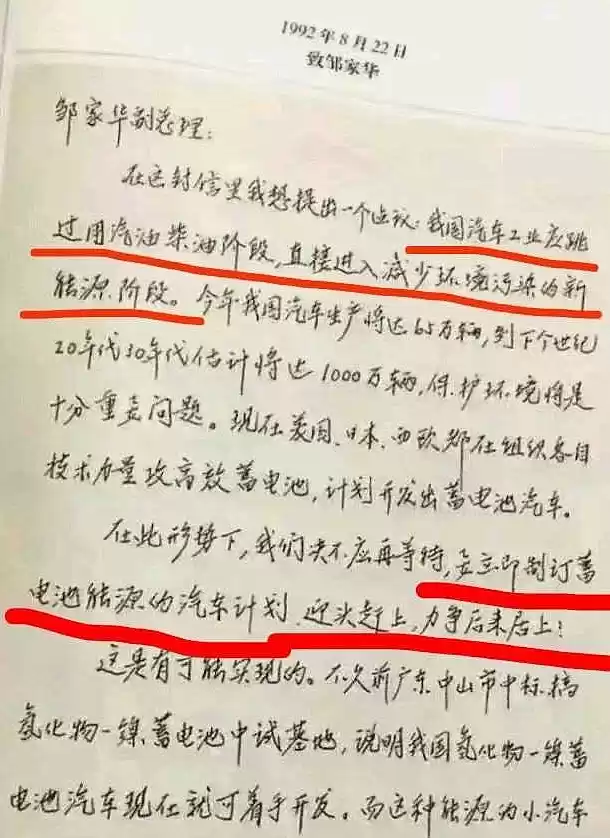 1992年8月22日
致邹家华
邹家华副总理:
在这封信里我想提出一个建议:我国汽车工业应跳
过用汽油柴油阶段,直接进入减少环境污染的新
能源阶段。今年我国汽车生产将达65万辆,到下个世纪
20年代30年代估计将达1000万辆,保护环境将是
十分重要问题。现在美国、日本、西欧都在组织各自
技术力量攻高效蓄电池,计划开发出蓄电池汽车。
在此形势下,我们决不应再等待,要立即制订蓄
电池能源的汽车计划,迎头赶上,力争后来居上!
这是有可能实现的。不久前广东中山市中标搞
氢化物一镍蓄电池中试基地,说明我国氢化物一镍蓄
电池汽车现在就可着手开发。而这种能源的小汽车